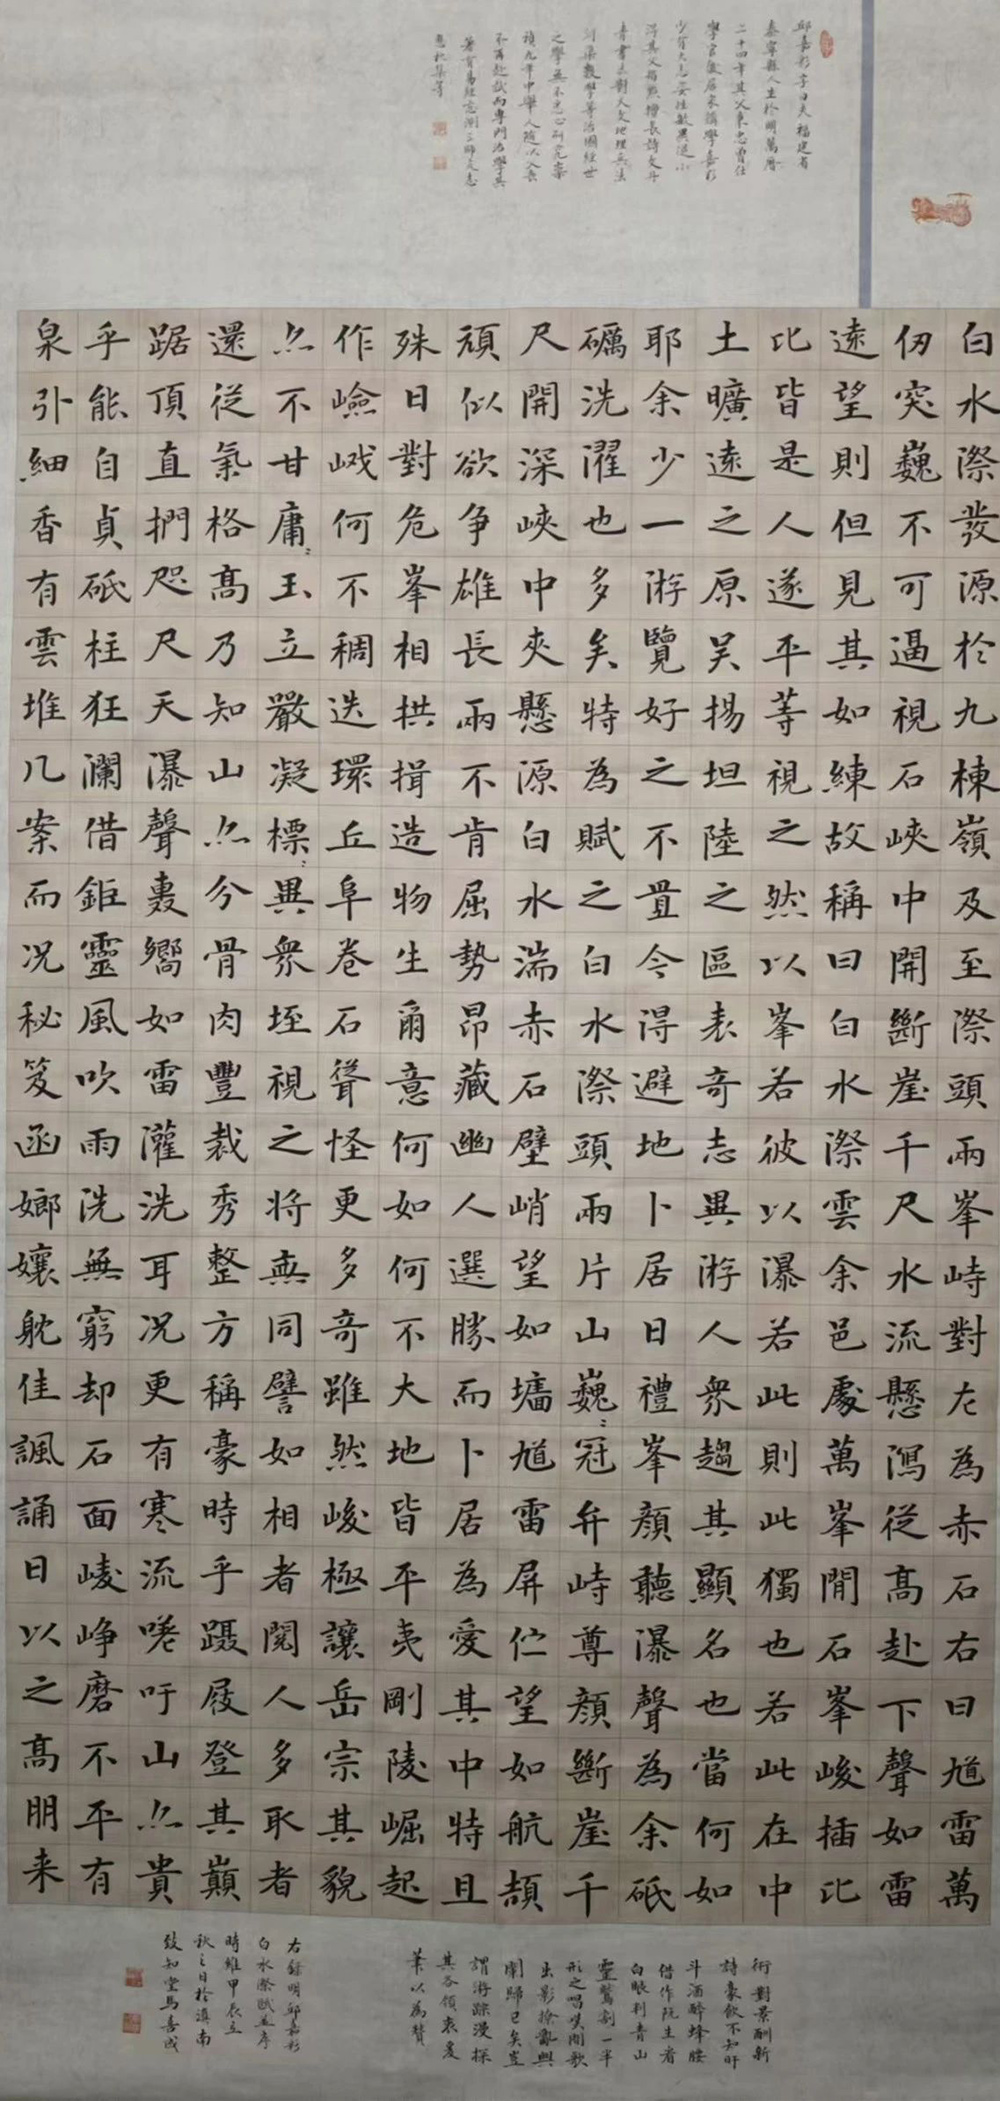 邱嘉彩字白夫福建省
泰寧縣人生於明萬曆
二十四年其父東忠曾任
學官後居家講學嘉彩
少負大志姿性敏異從小
得其父指點擅長詩文丹
青書法對天文地理兵法
數學等治國經世
之學無不悉心研究崇
禎九年中舉人隨以父喪
不再赴試而專門治學其
著有易經意測三師文志
秋集等
白水漈發源於九棟嶺及至漈頭兩峯峙對左為赤石右曰馗雷萬
仞突巍不可逼視石峽中開斷崖千尺水流懸瀉從高赴下聲如雷
遠望則但見其如練故稱曰白水漈雲余邑處萬峯間石峯峻插比
比皆是人遂平等視之然以峯若彼以瀑若此則此獨也若此在中
土曠遠之原吴揚坦陸之區表奇志異游人衆趨其顯名也當何如
耶余少一游覽好之不置今得避地卜居日禮峯顏聽瀑聲為余砥
礪洗濯也多矣特為賦之白水漈頭兩片山巍〻冠弁峙尊顏斷崖千
尺開深峽中夾懸源白水湍赤石壁峭望如墉馗雷屏伫望如航頡
頑似欲争雄長兩不肯屈勢昂藏幽人選勝而卜居為愛其中特且
殊日對危峯相拱揖造物生爾意何如何不大地皆平夷剛陵崛起
作嶮巇何不稠迭環丘阜卷石聳怪更多奇雖然峻極讓岳宗其貌
亦不甘庸〻玉立嚴凝標〻異衆垤視之將無同譬如相者閱人多取者
還從氣格高乃知山亦分骨肉豐裁秀整方稱豪時乎躡屐登其巔
踞頂直捫咫尺天瀑聲轟嚮如雷灌洗耳况更有寒流吁山亦貴
乎能自貞砥柱狂瀾借鉅靈風吹雨洗無窮却石面崚崢磨不平有
泉引細香有雲堆几案而况秘笈函嫏嬛躭佳諷誦日以之高朋来
術對景酬新
詩豪飲不知旰
斗酒醉蜂腰
借作阮生看
白眼判青山
靈鷲割一半
形之唱嘆閒歌
出影撩亂興
闌歸已矣豈
謂游踪漫探
其各領衷爰
筆以為贊
右錄明邱嘉彩
白水漈賦並序
時維甲辰立
秋之日於滇南
致知堂馬喜成